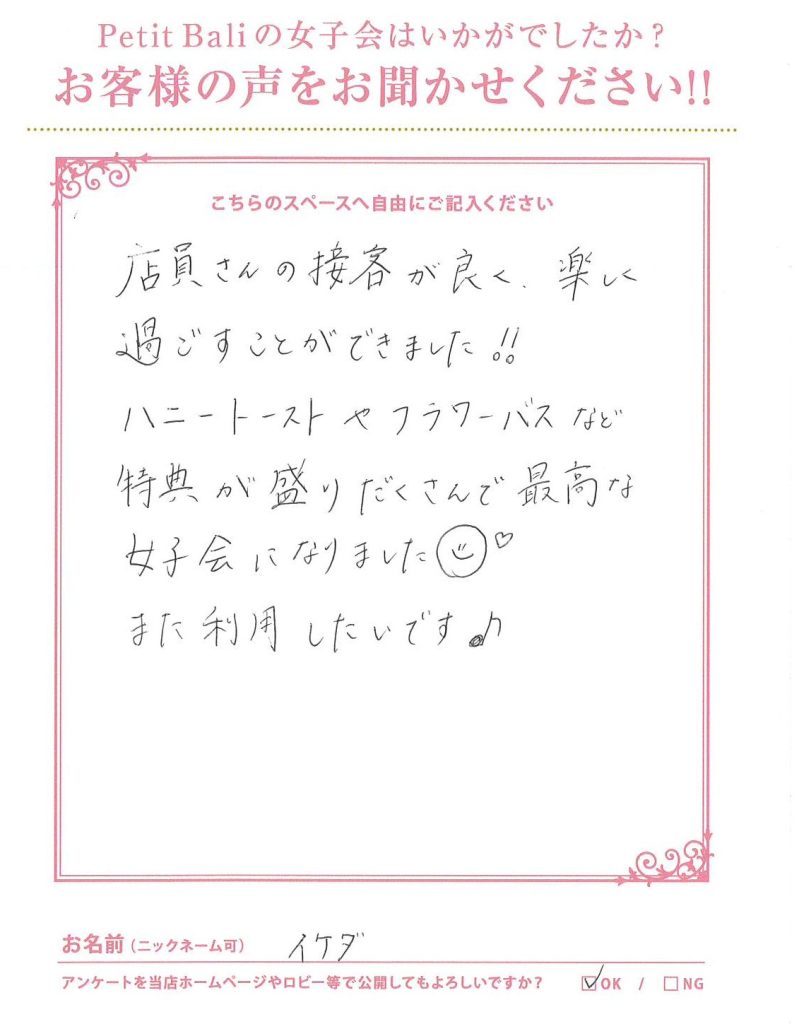 Petit Baliの女子会はいかがでしたか？
お客様の声をお聞かせください!!
こちらのスペースへ自由にご記入ください
店員さんの接客が良く、楽しく
過ごすことができました!!
ハニートーストやフラワーバスなど
特典が盛りだくさんで最高な
女子会になりました☺♡
また利用したいです♪
お名前（ニックネーム可） イケダ
アンケートを当店ホームページやロビー等で公開してもよろしいですか？ ☑OK / □NG